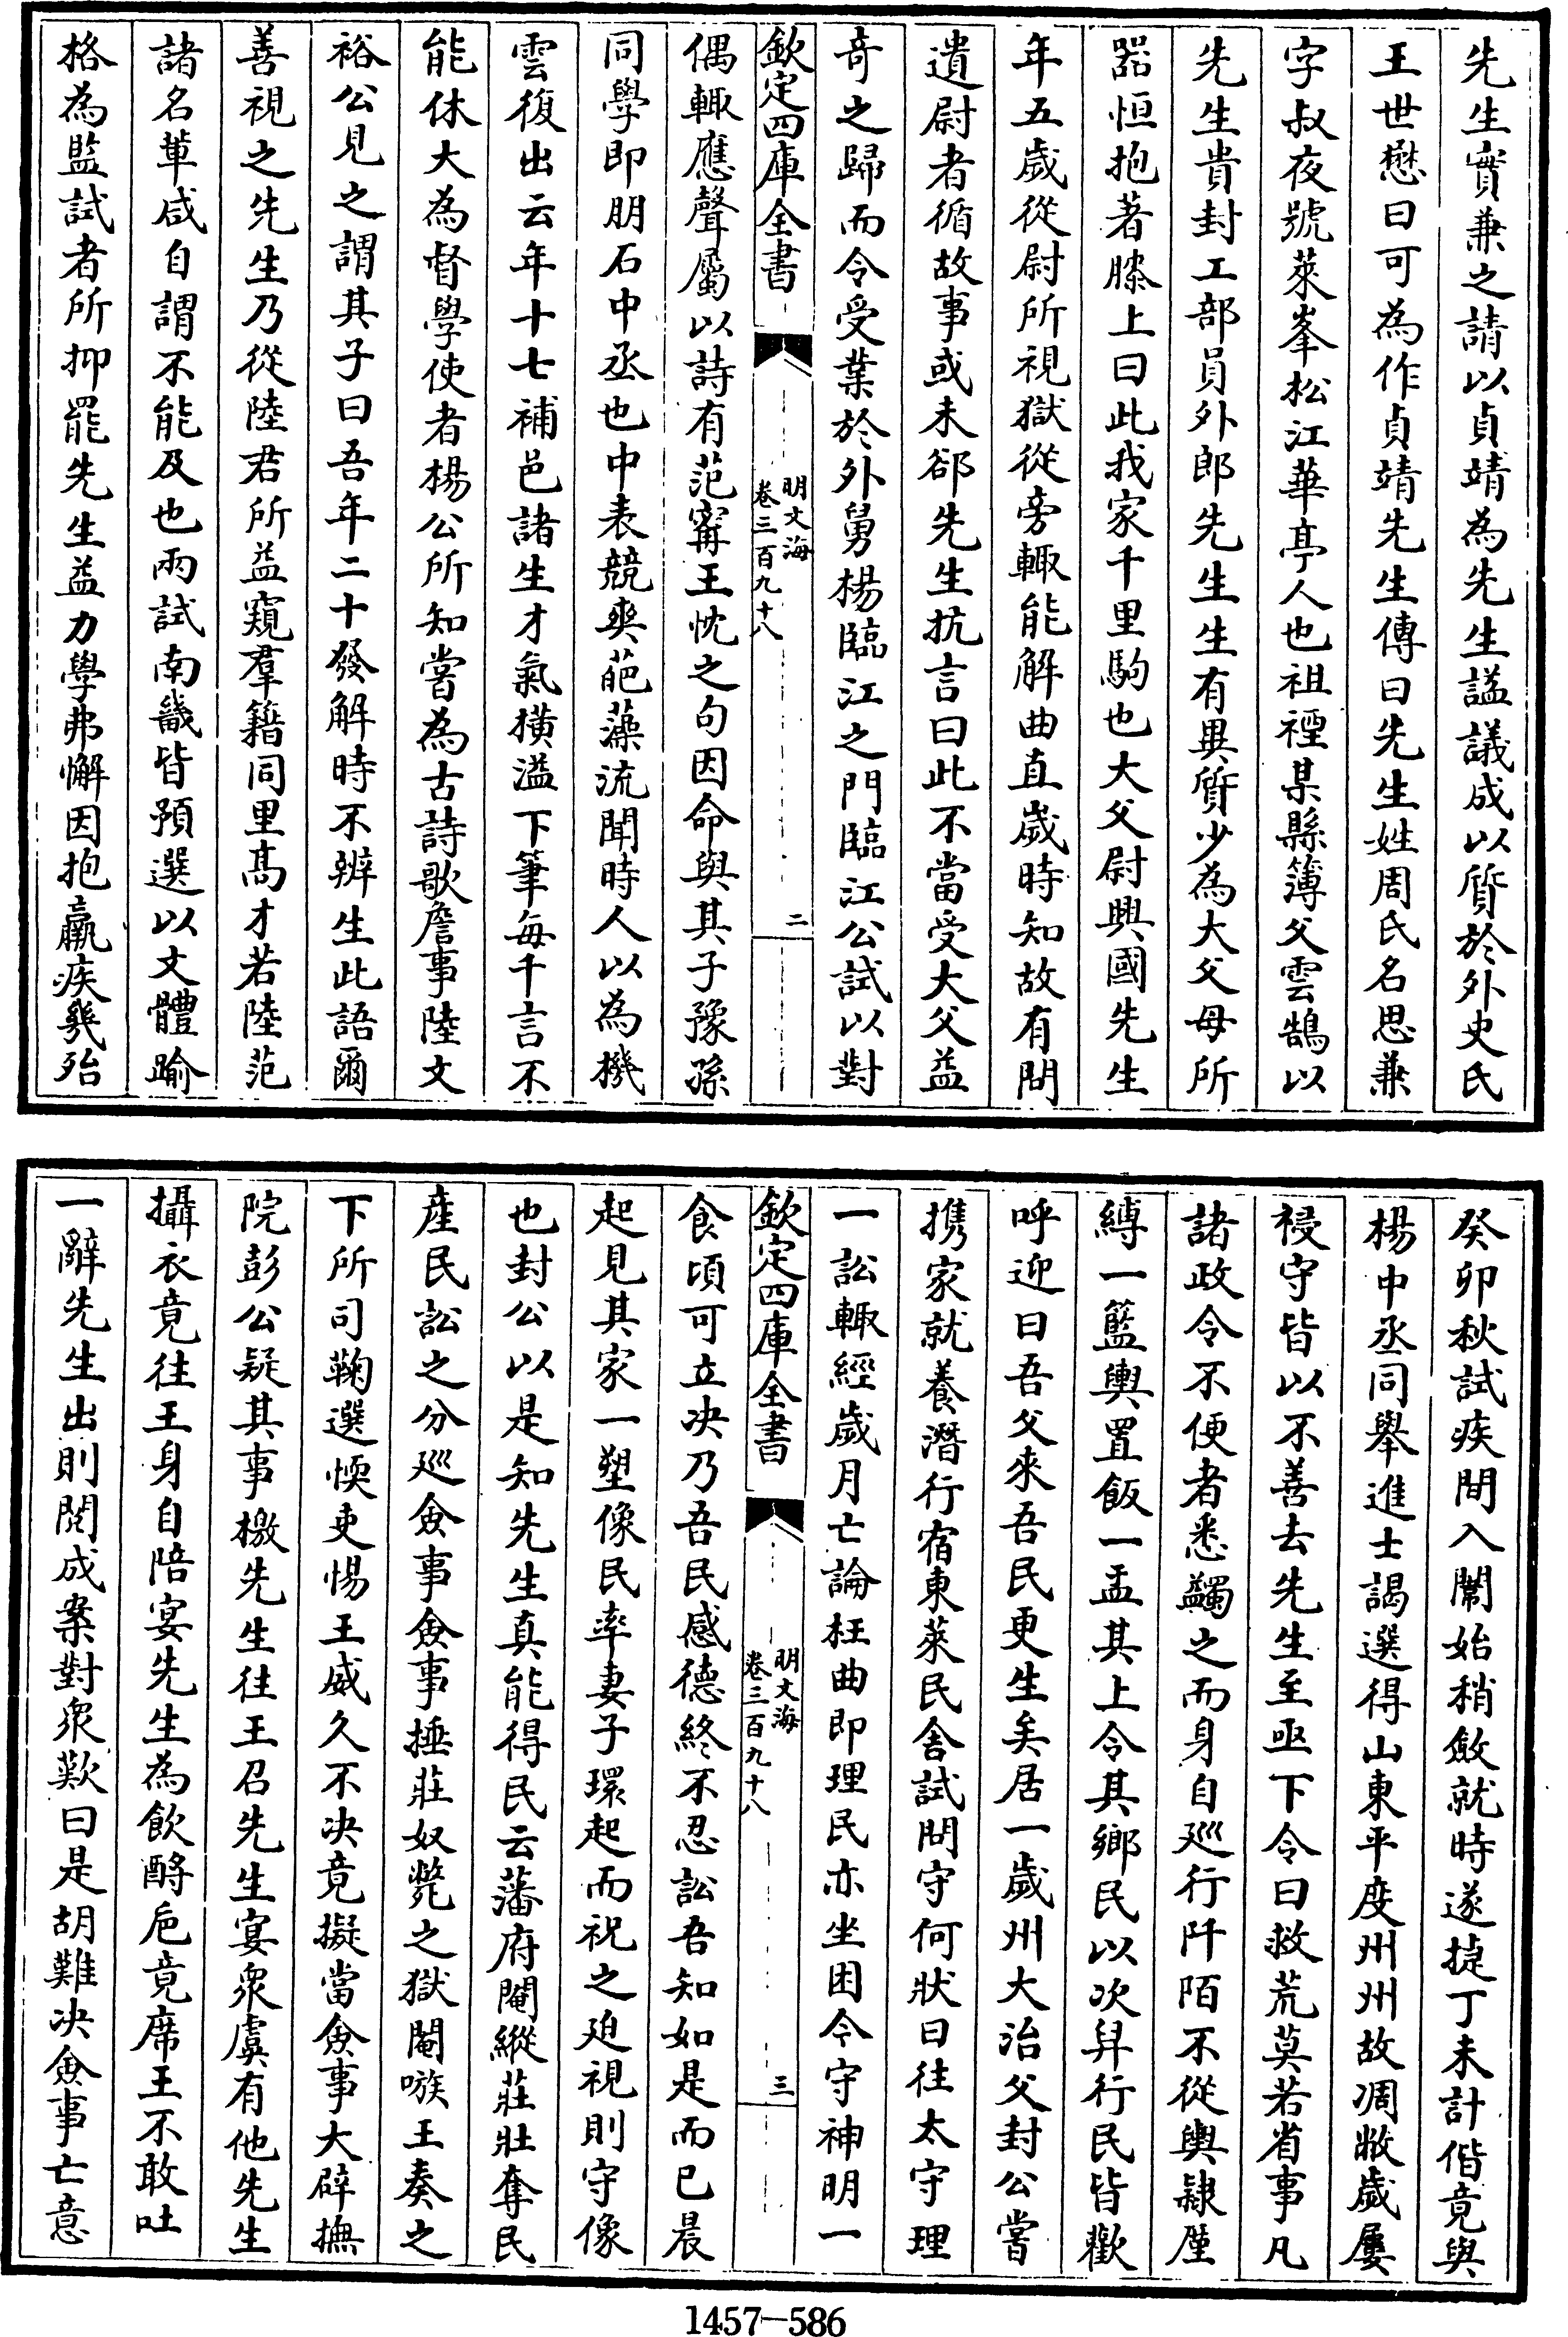 先生實兼之請以貞靖為先生諡議成以質於外史氏
王世懋曰可為作貞靖先生傳曰先生姓周氏名思兼
字叔夜號萊峯松江華亭人也祖禋某縣簿父雲鵠以
先生貴封工部員外郎先生生有異質少為大父母所
器恒抱著膝上曰此我家千里駒也大父尉興國先生
年五歲從尉所視獄從旁輙能解曲直歲時知故有問
遺尉者循故事或未郤先生抗言曰此不當受大父益
奇之歸而令受業於外舅楊臨江之門臨江公試以對
欽定四庫全書
明文海
卷三百九十八
二
偶輙應聲屬以詩有范甯王忱之句因命與其子豫孫
同學即朋石中丞也中表競爽葩藻流聞時人以為機
雲復出云年十七補邑諸生才氣橫溢下筆每千言不
能休大為督學使者楊公所知嘗為古詩歌詹事陸文
裕公見之謂其子曰吾年二十發解時不辨生此語爾
善視之先生乃從陸君所益窺羣籍同里髙才若陸范
諸名軰咸自謂不能及也兩試南畿皆預選以文體踰
格為監試者所抑罷先生益力學弗懈因抱羸疾幾殆
癸卯秋試疾間入闈始稍斂就時遂捷丁未計偕竟與
楊中丞同舉進士謁選得山東平度州州故凋敝歲屢
祲守皆以不善去先生至亟下令曰救荒莫若省事凡
諸政令不便者悉蠲之而身自廵行阡陌不從輿隸厪
縛一籃輿置飯一盂其上令其鄉民以次舁行民皆歡
呼迎曰吾父來吾民更生矣居一歲州大治父封公嘗
携家就養潛行宿東萊民舍試問守何狀曰往太守理
一訟輙經歲月亡論枉曲即理民亦坐困令守神明一
欽定四庫全書
明文海
卷三百九十八
三
食頃可立决乃吾民感德終不忍訟吾知如是而已晨
起見其家一塑像民率妻子環起而祝之廹視則守像
也封公以是知先生真能得民云藩府閹縱莊壯奪民
産民訟之分廵僉事僉事捶莊奴斃之獄閹嗾王奏之
下所司鞫選愞吏惕王威久不决竟擬當僉事大辟撫
院彭公疑其事檄先生往王召先生宴衆虞有他先生
攝衣竟往王身自陪宴先生為飲酹巵竟席王不敢吐
一辭先生出則閱成案對衆歎曰是胡難决僉事亡意
1457-586